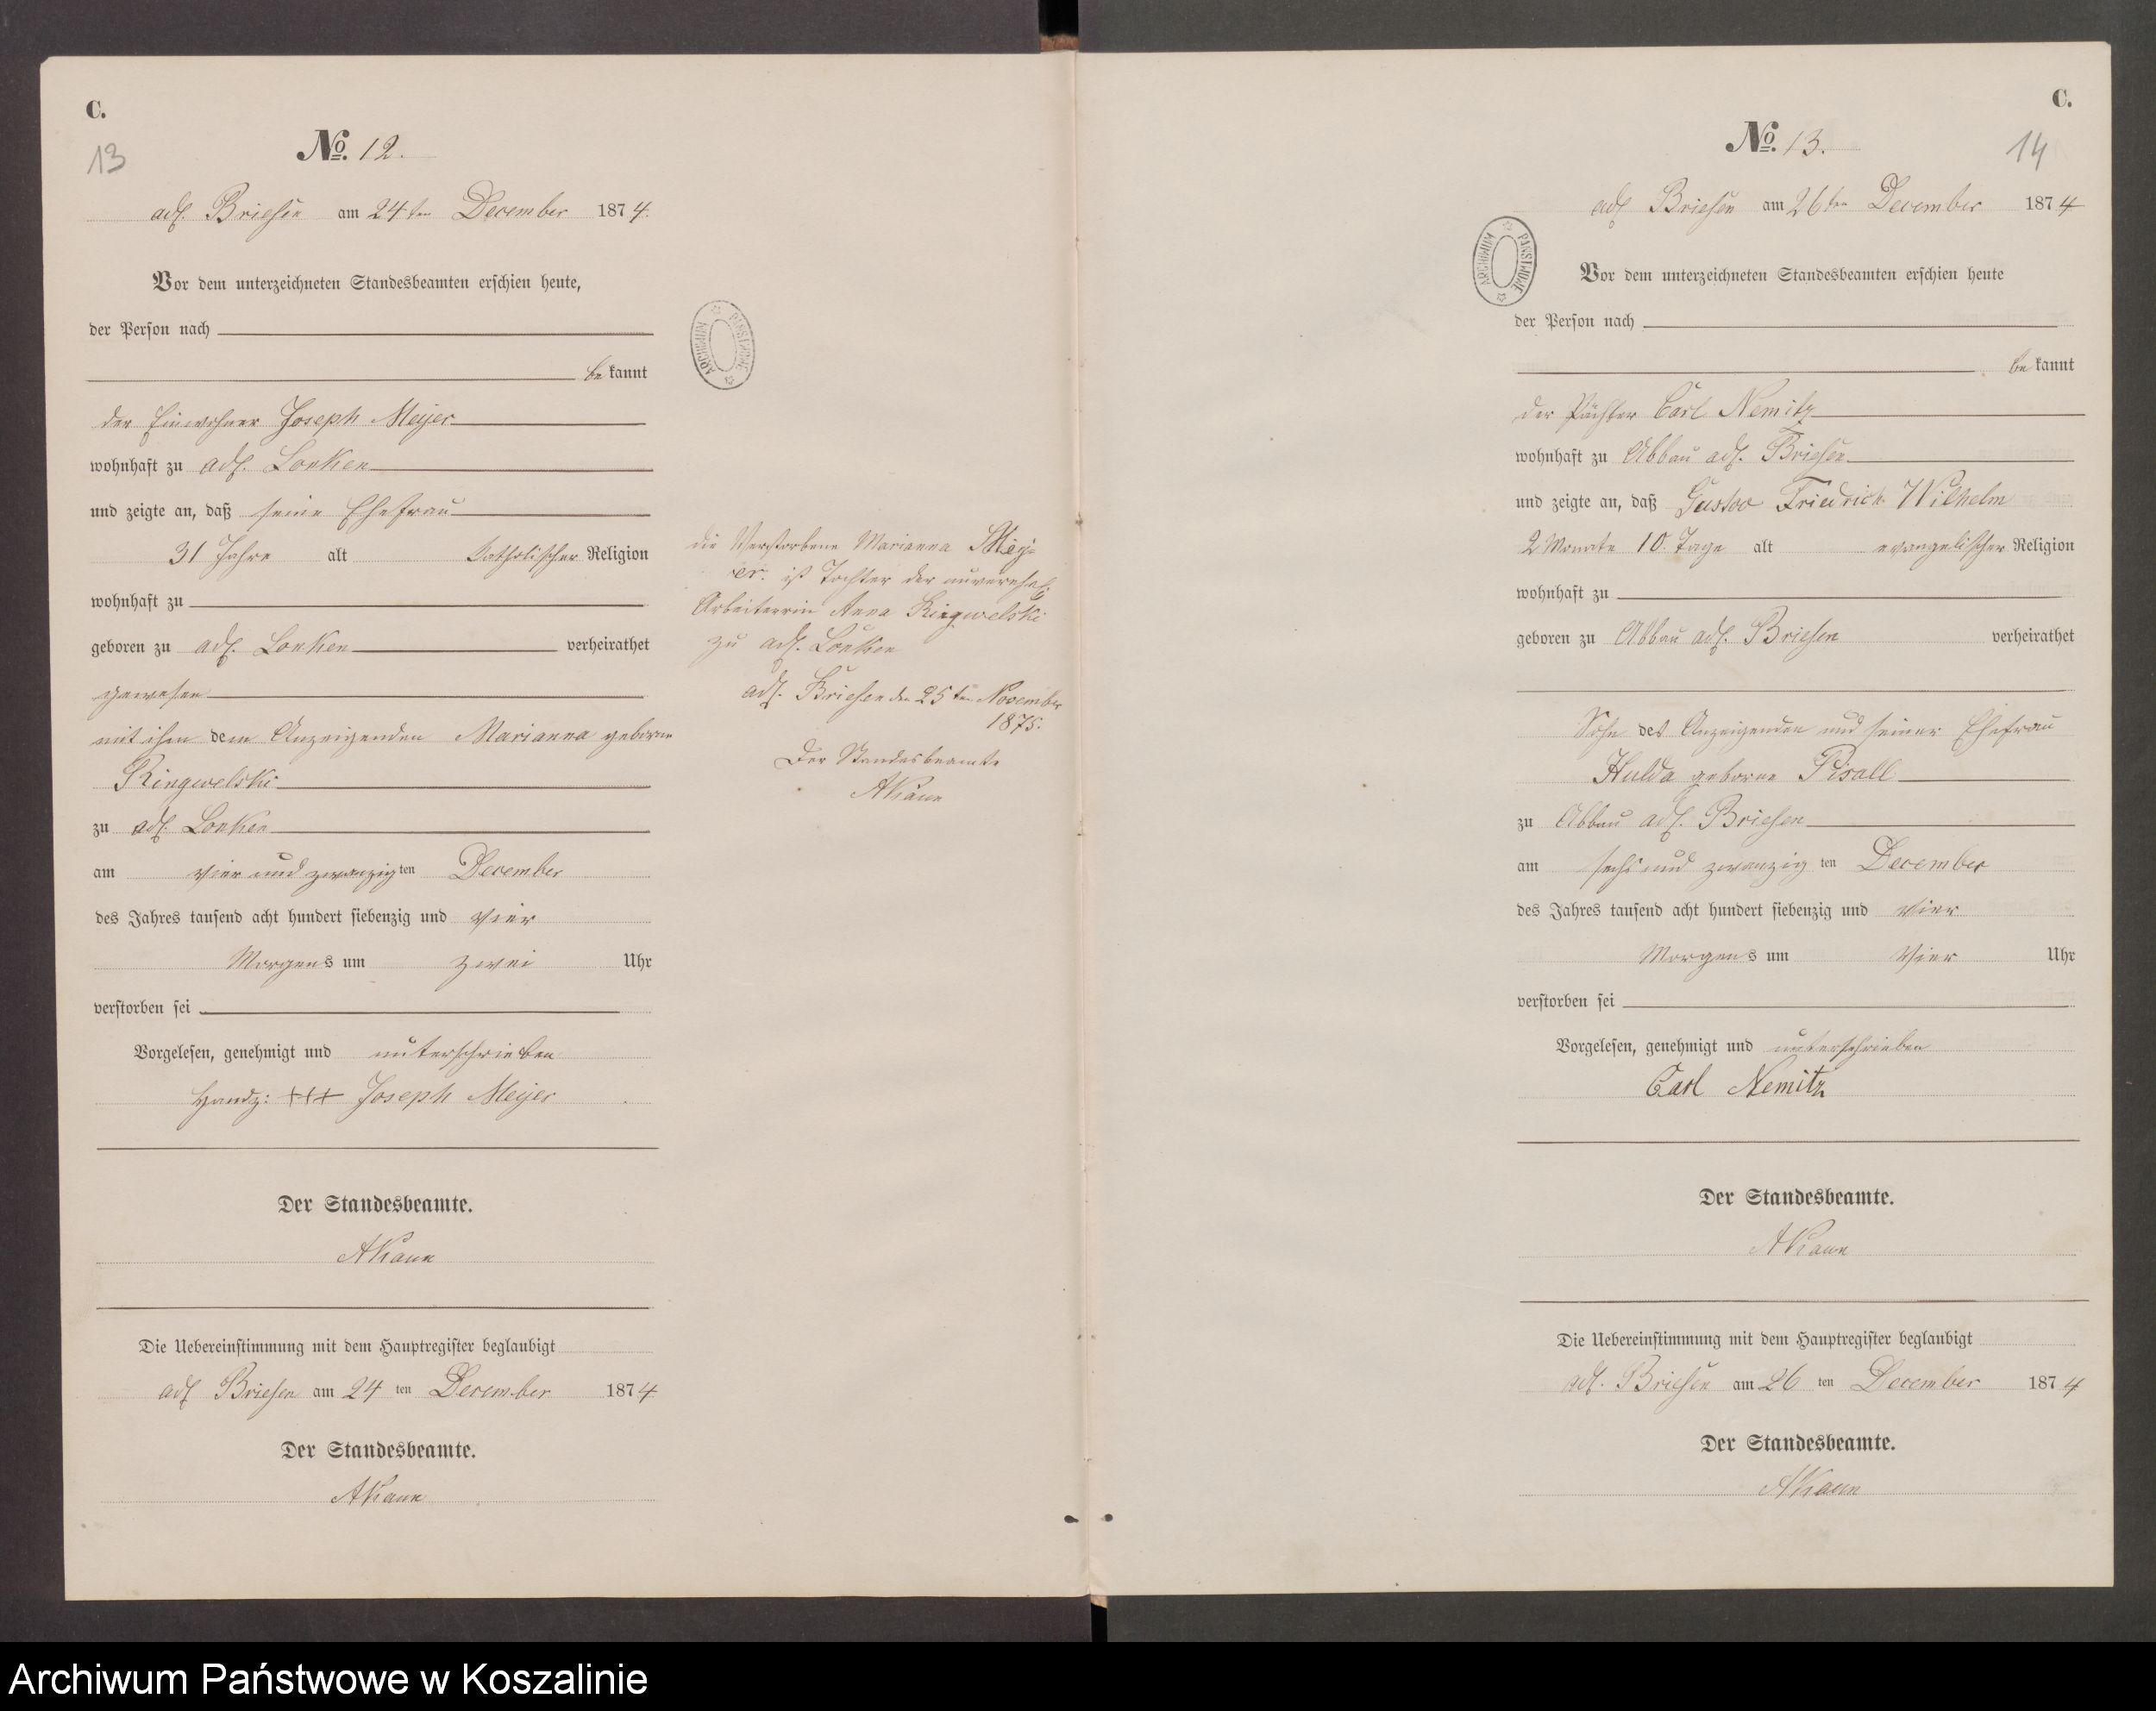 C.
13
No. 12.
adl. Briesen am 24ten December 1874.
Vor dem unterzeichneten Standesbeamten erschien heute,
der Person nach
bekannt
der Einwohner Joseph Meyer
wohnhaft zu adl. Lonken
und zeigte an, daß seine Ehefrau
31 Jahre alt katholischer Religion
wohnhaft zu
geboren zu adl. Lonken verheirathet
gewesen
mit ihm dem Anzeigenden Marianna geborne
Ringwelski
zu adl. Lonken
am vier und zwanzigten December
des Jahres tausend acht hundert siebenzig und vier
Morgens um zwei Uhr
verstorben sei
Vorgelesen, genehmigt und unterschrieben
Handz: +++ Joseph Meyer
Der Standesbeamte.
AKaun
Die Uebereinstimmung mit dem Hauptregister beglaubigt
adl Briesen am 24 ten December 1874
Der Standesbeamte.
AKaun
ARCHIWUM PAŃSTWOWE
die Verstorbene Marianna Mey-
er. ist Tochter der unverehel:
Arbeiterrin Anna Ringwelski
zu adl. Lonken
adl. Briesen den 25ten November
1875.
Der Standesbeamte
AKaun
C.
14
No. 13.
adl Briesen am 26ten December 1874
ARCHIWUM PAŃSTWOWE
Vor dem unterzeichneten Standesbeamten erschien heute
der Person nach
bekannt
der Pächter Carl Nemitz
wohnhaft zu Abbau adl. Briesen
und zeigte an, daß Gustav Friedrich Wilhelm
2 Monate 10. Tage alt evangelischer Religion
wohnhaft zu
geboren zu Abbau adl. Briesen verheirathet
Sohn des Anzeigenden und seiner Ehefrau
Hulda geborne Pisall
zu Abbau adl. Briesen
am sechs und zwanzig ten December
des Jahres tausend acht hundert siebenzig und vier
Morgens um Vier Uhr
verstorben sei
Vorgelesen, genehmigt und unterschrieben
Carl Nemitz
Der Standesbeamte.
AKaun
Die Uebereinstimmung mit dem Hauptregister beglaubigt
adl. Briesen am 26 ten December 1874
Der Standesbeamte.
AKaun
Archiwum Państwowe w Koszalinie